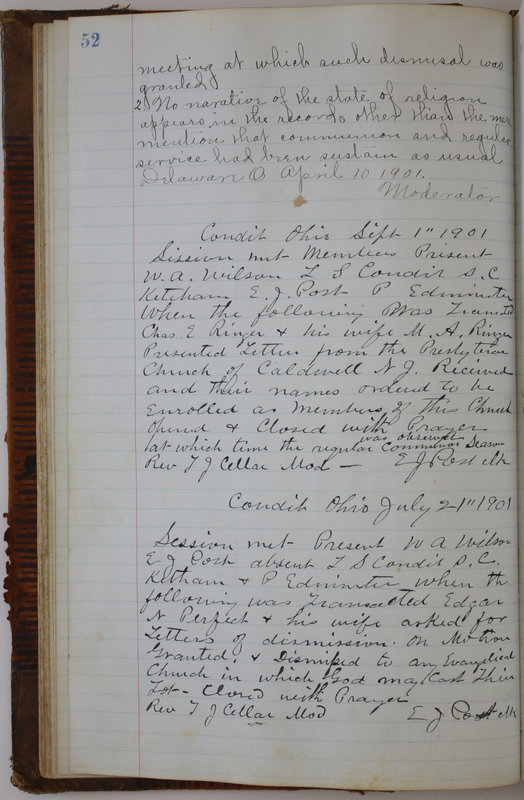 52
meeting at which such dismisal was
granted
2. No narative of the state of religion
appears in the records other than the mere
mention that communion and regular
service had been sustain as usual
Delaware O April 10 1901.
Moderator
Condit Ohio Sept 1" 1901
Session met Members Present
W. A. Wilson L S Condit S. C.
Ketcham E. J. Post P Edminster
When the following Was Transtd
Chas. E Ringer & his wife M. A. Ringer
Presented Letters from the Presbyterian
Church of Caldwell N J. Received
and their names ordered to be
Enrolled as Members of This Church
Opend & Closed with Prayer
was observed
at which time the regular Communion Season
Rev T J Cellar Mod — E J Post clk
Condit Ohio July 21" 1901
Session met Present W A Wilson
E J Post absent L S Condit S. C.
Ketham & P Edminster when the
following was Transacted Edgar
N Perfect & his wife asked for
Letters of dismission. On Motion
Granted. & Dismised to any Evangelical
Church in which God may Cast Their
Lot - Closed with Prayer
Rev T J Cellar Mod E J Post clk